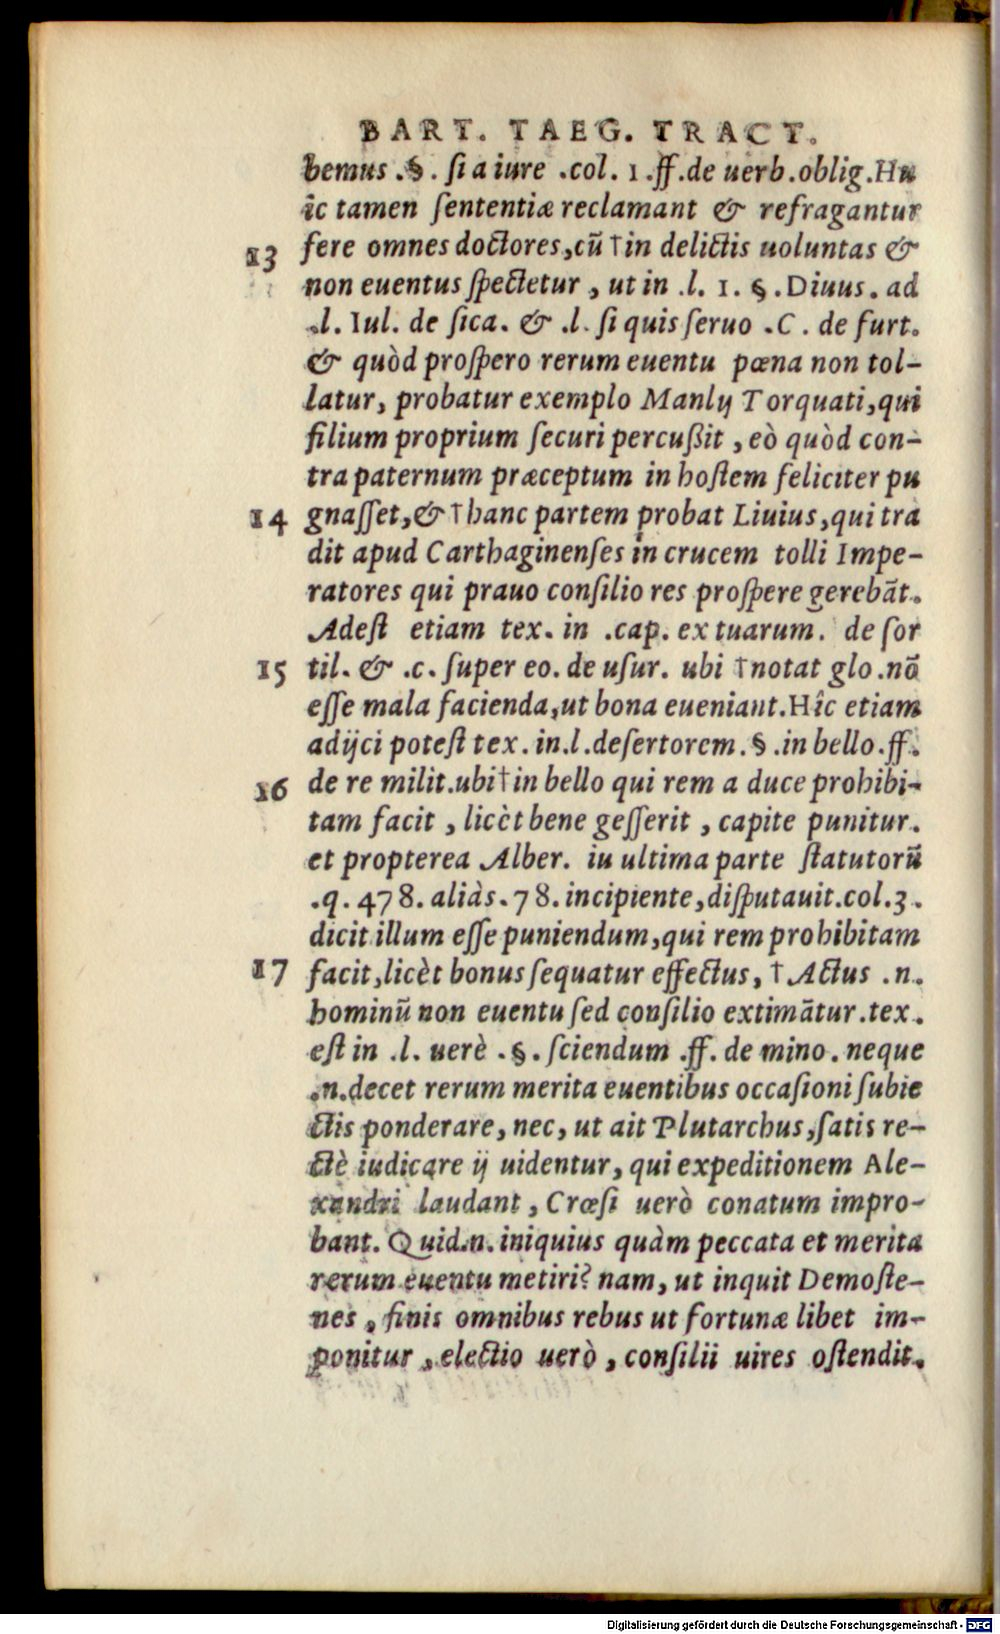 BART. TAEG. TRACT.
bemus .§. ſi a iure .col. 1 .ff.de uerb.oblig.Hu
ic tamen ſententiæ reclamant & refragantur
13 fere omnes doctores,cū †in delictis uoluntas &
non euentus ſpectetur , ut in .l. 1. §.Diuus. ad
.l. Iul. de ſica. & .l. ſi quis ſeruo .C. de furt.
& quòd proſpero rerum euentu pœna non tol-
latur, probatur exemplo Manlij Torquati,qui
filium proprium ſecuri percußit , eò quòd con-
tra paternum præceptum in hoſtem feliciter pu
14 gnaſſet,& †hanc partem probat Liuius,qui tra
dit apud Carthaginenſes in crucem tolli Impe-
ratores qui prauo conſilio res proſpere gerebāt.
Adeſt etiam tex. in .cap. ex tuarum. de ſor
15 til. & .c. ſuper eo. de uſur. ubi †notat glo .nō
eſſe mala facienda,ut bona eueniant.Hîc etiam
adijci poteſt tex. in.l.deſertorem.§.in bello.ff.
16 de re milit.ubi†in bello qui rem a duce prohibi-
tam facit , licèt bene geſſerit , capite punitur.
et propterea Alber. iu ultima parte ſtatutorū
.q. 478. aliàs.78.incipiente,diſputauit.col.3.
dicit illum eſſe puniendum,qui rem prohibitam
17 facit,licèt bonus ſequatur effectus, † Actus .n.
hominū non euentu ſed conſilio extimātur.tex.
eſt in .l. uerè .§. ſciendum .ff. de mino. neque
.n.decet rerum merita euentibus occaſioni ſubie
ctis ponderare, nec, ut ait Plutarchus,ſatis re-
ctè iudicare ij uidentur, qui expeditionem Ale-
xandri laudant , Crœſi uerò conatum impro-
bant. Quid.n. iniquius quàm peccata et merita
rerum euentu metiri? nam, ut inquit Demoſte-
nes , finis omnibus rebus ut fortunæ libet im-
ponitur , electio uerò , conſilii uires oſtendit.
Digitalisierung gefördert durch die Deutsche Forschungsgemeinschaft - DFG